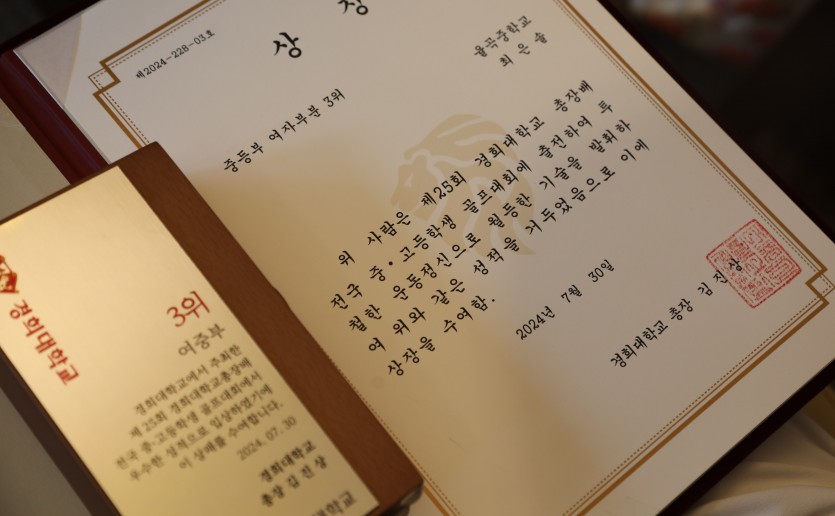 상 장
제2024-228-03호
율곡중학교
최은솔
중등부 여자부분 3위
위 사람은 제25회 경희대학교 총장배
전국 중·고등학생 골프대회에 출전하여 투
철한 운동정신으로 월등한 기술을 발휘하
여 위와 같은 성적을 거두었음으로 이에
상장을 수여함.
2024년 7월 30일
경희대학교 총장 김진상
경희대학교
3위
여중부
경희대학교에서 주최한
제 25회 경희대학교총장배
전국 중·고등학생 골프대회에서
우수한 성적으로 입상하였기에
이 상패를 수여합니다.
2024. 07. 30
경희대학교
총장 김 진 상
대학교